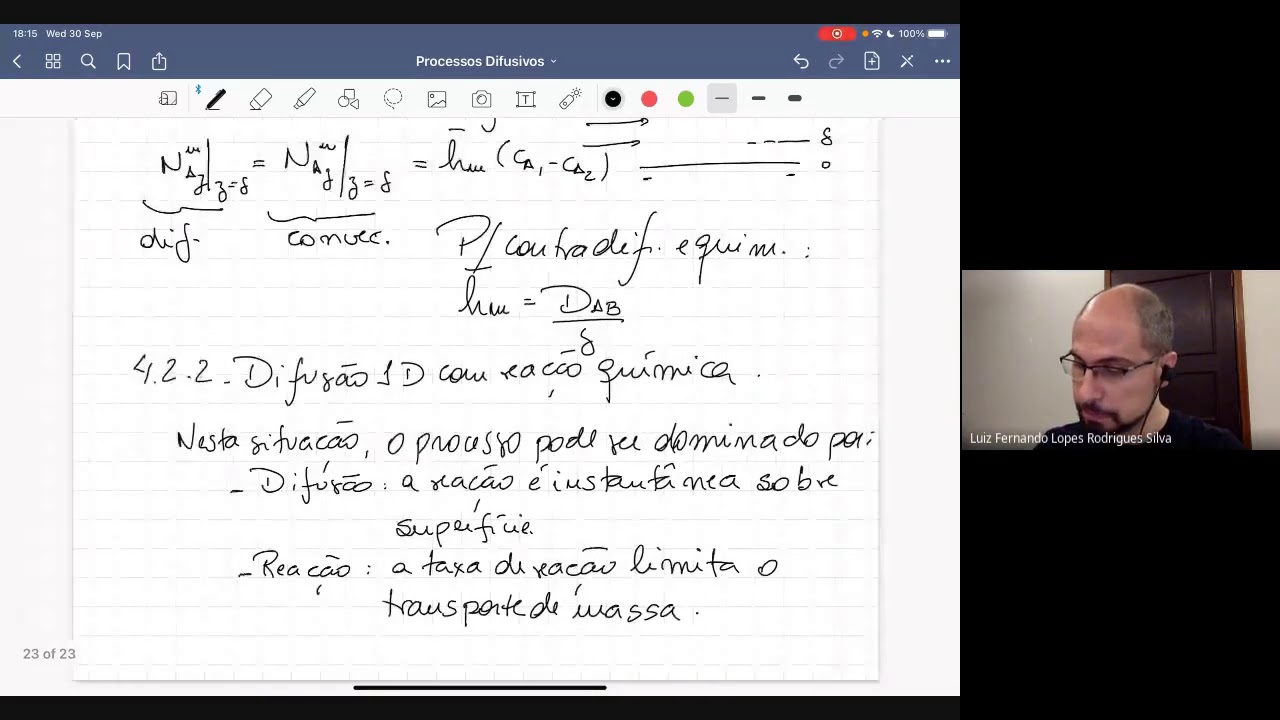 18:15 Wed 30 Sep
100%
Processos Difusivos
N_{A_z}^m|_{z=δ} = N_{A_z}^m|_{z=δ} = h̄_m (C_{A_1} - C_{A_2})
δ
0
dif. convec.
P/ contradif. equim. :
h_m = D_{AB}/δ
4.2.2 - Difusão 1D com reação química.
Nesta situação, o processo pode ser dominado por:
- Difusão: a reação é instantânea sobre
superfície.
- Reação: a taxa de reação limita o
transporte de massa.
23 of 23
Luiz Fernando Lopes Rodrigues Silva